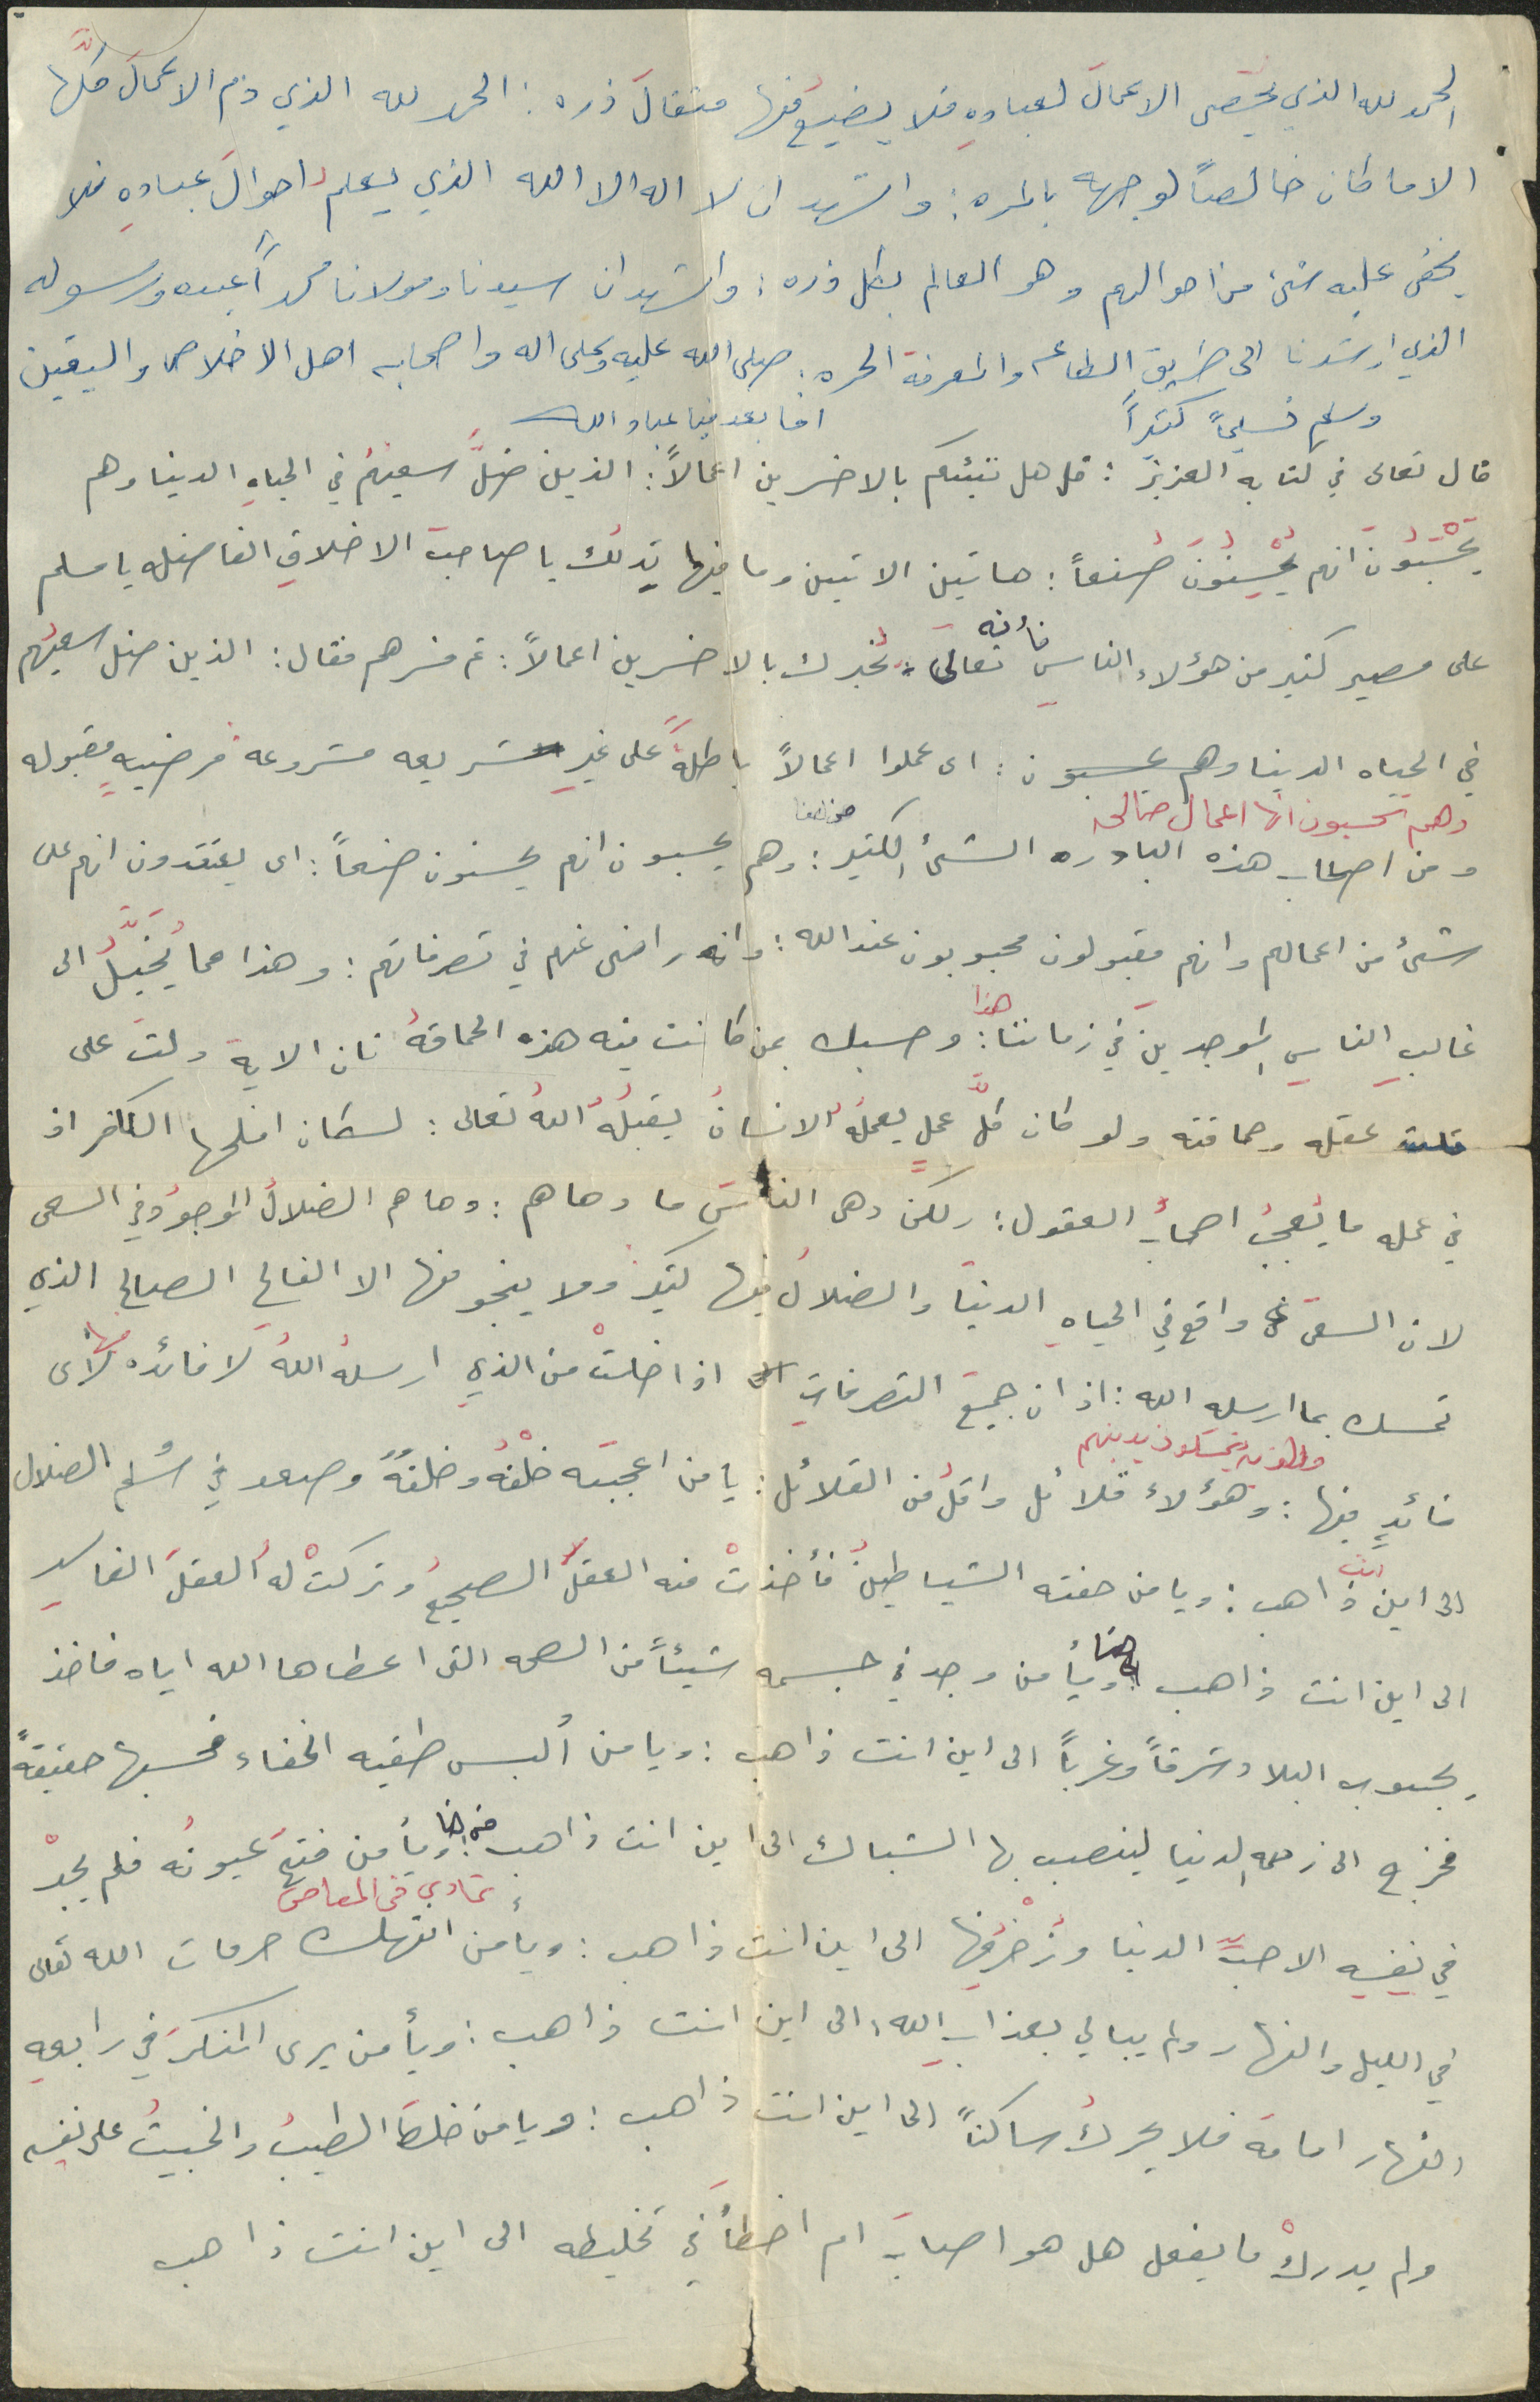 الحمد لله الذي يحصى الاعمالَ لعبادهِ فلا يضيعُ منها مثقالَ ذره : الحمد لله الذي ذم الاعمالَ كلَّها
الا ما كان خالصاً لوجهه بالمره : واشهد ان لا اله الا الله الذي يعلم احوالَ عبادهِ فلا
يخفى عليه شئ من احوالهم وهو العالم بكل ذره : واشهد ان سيدنا ومولانا محمداً عبده ورسوله
الذي ارشدنا الى طريق الطاعه والمعرفة الحره . صلى الله عليه وعلى اله واصحابه اهل الاخلاص واليقين
وسلم تسليماً كثيراً اما بعد فيا عباد الله
قال تعالى في كتابه العزيز : قل هل ننبئكم بالاخسرين اعمالاً : الذين ضلَّ سعيهُم في الحياهِ الدنيا وهم
يَحْسَبُونَ انهم يُحْسِنُونَ صُنعاً : هاتين الايتين وما فيها يَدلُك يا صاحبَ الاخلاقِ الفاضله يا مسلم
على مصير كثير من هؤلاء الناسِ فأنه تعالى : يُخبرك بالاخسرين اعمالاً : ثم فسرهم فقال : الذين ضل سعيُهم
في الحياه الدنيا وهم يحسبون : اى عملوا اعمالاً باطلةً على غيرِ شريعه مشروعه مرضيهٍ مقبوله
وهم يحسبون انها اعمال صالحه
ومن اصحاب هذه البادره الشئ الكثير : وهم يحسبون انهم يحسنون صنعاً : اى يعتقدون انهم على
شئ من اعمالهم وانهم مقبولون محبوبون عند الله : وانه راضى عنهم في تصرفاتهم : وهذا مما يُخيَّلُ الى
غالبِ الناسِ الموجدينَ في زماننا هذا : وحسبك بمن كانت فيه هذه الحماقهُ فان الاية دلت على
قلت عقله وحماقته ولو كان كلُّ عملٍ يعملهُ الانسانُ يقبلُهُ اللهُ تعالى : لكان افلحها الكافر اذ
في عمله ما يُعجبُ اصحابُ العقول : ولكن دهى الناسَ ما دهاهم : وما هم الضلالُ الموجودُ في السعى
لان السعىَ واقع في الحياهِ الدنيا والضلالُ فيها كثير ولا ينجو منها الا الفالحِ الصالحِ الذي
تمسك بما ارسله الله : اذ ان جميعَ التصرفاتِ اذا خلتْ من الذي ارسلهُ اللهُ لا فائده منها لاى
والذين يتمسكون بدينهم
فائدٍ فيها : وهؤلاء قلائل واقلُ من القلائل : يا من اعجبته خلْقُهُ وخلقهُ وصعد في سُلم الضلال
الى اين انت ذاهب : ويا من حفته الشياطينُ فأخذتْ منه العقلُ الصحيحُ وتركتْ له العقلَ الفاسد
الى اين انت ذاهب : ويأ من وجد في جسمه شيئاً من الصحه التى اعطاها الله اياه فاخذ
يجوب البلاد شرقاً وغرباً الى اين انت ذاهب : ويا من ألبس طقيه الخفاء فحسبها حقيقةً
فخرج الى زحمه الدنيا لينصب بها الشباك الى اين انت ذاهب : ويأ من فتح عيونُه فلم يجدْ
تمادي فى المعاصى
في نفسِه الا حبَّ الدنيا وزُخْرُفِها الى اين انت ذاهب : ويأ من انتهك حرمات الله تعالى
في الليل والنهار ولم يبالي بعذابِ الله ، الى اين انت ذاهب : ويأ من يرى المنكرَ في رابعهِ
النهار امامه فلا يحركُ ساكناً الى اين انت ذاهب : ويا من خلطَ الطيبُ والخبيثُ على نفسه
ولم يدركْ ما يفعل هل هو اصابَ ام اخطأَ في تخليطه الى اين انت ذاهب